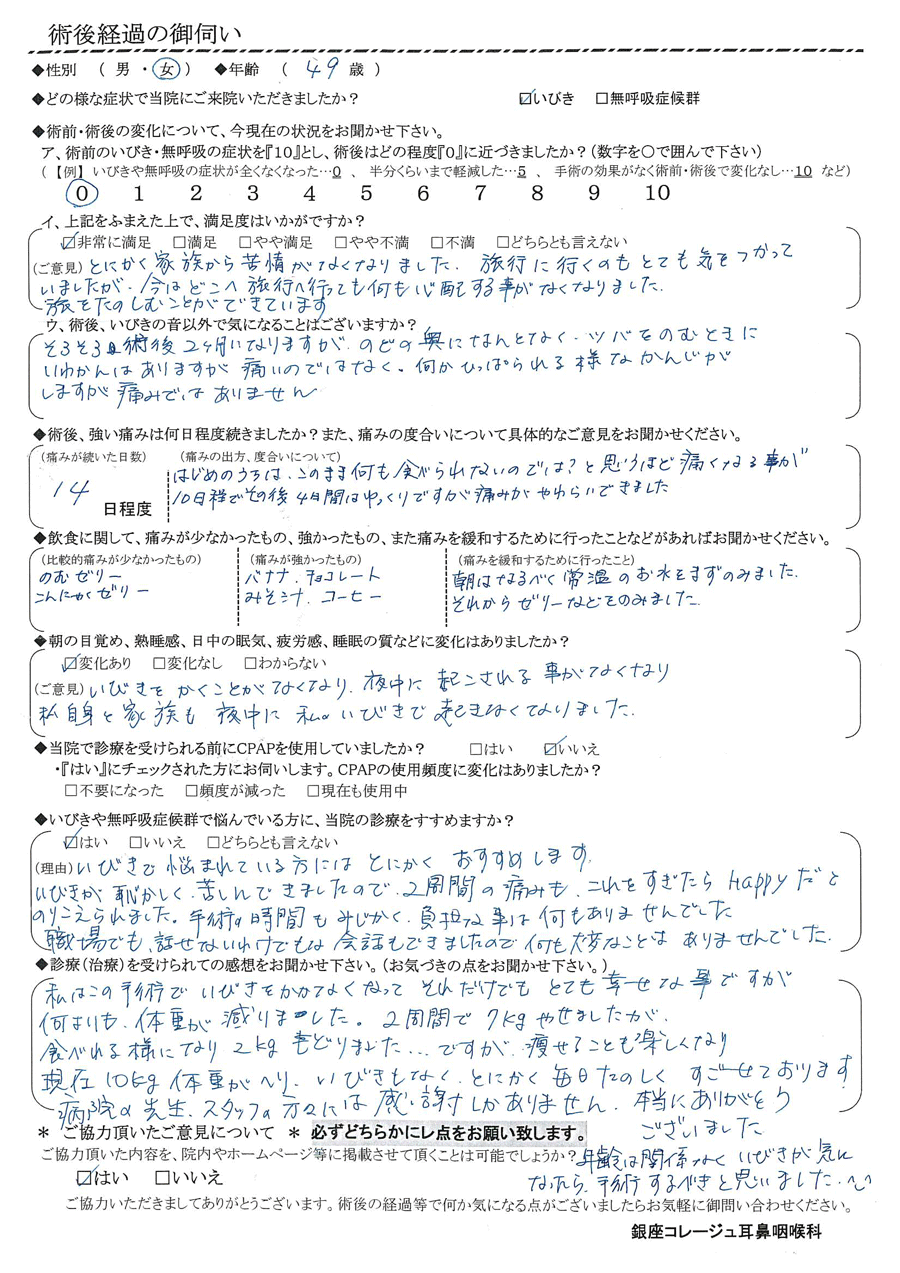 術後経過の御伺い
◆性別 ( 男 ・ 女 ) ◆年齢 ( 49 歳 )
◆どの様な症状で当院にご来院いただきましたか? ☑いびき □無呼吸症候群
◆術前・術後の変化について、今現在の状況をお聞かせ下さい。
ア、術前のいびき・無呼吸の症状を『10』とし、術後はどの程度『0』に近づきましたか?(数字を○で囲んで下さい)
(【例】 いびきや無呼吸の症状が全くなくなった…0 、 半分くらいまで軽減した…5 、 手術の効果がなく術前・術後で変化なし…10 など)
0 1 2 3 4 5 6 7 8 9 10
イ、上記をふまえた上で、満足度はいかがですか?
☑非常に満足 □満足 □やや満足 □やや不満 □不満 □どちらとも言えない
(ご意見) とにかく家族から苦情がなくなりました. 旅行に行くのもとても気をつかって
いましたが、今はどこへ旅行へ行っても何も心配する事がなくなりました.
旅をたのしむことができています
ウ、術後、いびきの音以外で気になることはございますか?
そろそろ術後2ヶ月になりますが のどの奥になんとなく、ツバをのむときに
いわかんはありますが 痛いのではなく。何かひっぱられる様なかんじが
しますが 痛みではありません
◆術後、強い痛みは何日程度続きましたか?また、痛みの度合いについて具体的なご意見をお聞かせください。
(痛みが続いた日数) (痛みの出方、度合いについて)
はじめのうちは、このまま何も食べられないのでは?と思うほど痛くなる事が
14 日程度 10日程でその後4日間はゆっくりですが痛みがやわらいできました
◆飲食に関して、痛みが少なかったもの、強かったもの、また痛みを緩和するために行ったことなどがあればお聞かせください。
(比較的痛みが少なかったもの) (痛みが強かったもの) (痛みを緩和するために行ったこと)
のむゼリー バナナ、チョコレート 朝はなるべく常温のお水をまずのみました.
こんにゃくゼリー みそ汁、コーヒー それからゼリーなどをのみました.
◆朝の目覚め、熟睡感、日中の眠気、疲労感、睡眠の質などに変化はありましたか?
☑変化あり □変化なし □わからない
(ご意見) いびきをかくことがなくなり、夜中に起こされる事がなくなり
私自身と家族も夜中に私のいびきで起きなくてなりました.
◆当院で診療を受けられる前にCPAPを使用していましたか? □はい ☑いいえ
・『はい』にチェックされた方にお伺いします。CPAPの使用頻度に変化はありましたか?
□不要になった □頻度が減った □現在も使用中
◆いびきや無呼吸症候群で悩んでいる方に、当院の診療をすすめますか?
☑はい □いいえ □どちらとも言えない
(理由) いびきで悩まれている方にはとにかくおすすめします.
いびきが恥かしく、苦しんできましたので、2周間の痛みも、これをすぎたらHappyだと
のりこえられました。手術の時間もみじかく、負担な事は何もありませんでした
職場でも、話せないわけでもな 会話もできましたので 何も大変なことはありませんでした.
◆診療(治療)を受けられての感想をお聞かせ下さい。(お気づきの点をお聞かせ下さい。)
私はこの手術でいびきをかかなくなって それだけでもとても幸せな事ですが
何よりも、体重が減りました。2周間で7kgやせましたが、
食べれる様になり2kgもどりました…ですが、痩せることも楽しくなり
現在10kg体重がへり、いびきもなく、とにかく毎日たのしくすごせております
病院の先生、スタッフの方々には感謝しかありません. 本当にありがとう
ございました
* ご協力頂いたご意見について * 必ずどちらかにレ点をお願い致します。
ご協力頂いた内容を、院内やホームページ等に掲載させて頂くことは可能でしょうか?
年齢は関係なくいびきが気に
☑はい □いいえ
なったら、手術するべきと思いました.
ご協力いただきましてありがとうございます。術後の経過等で何か気になる点がございましたらお気軽に御問い合わせください。
銀座コレージュ耳鼻咽喉科